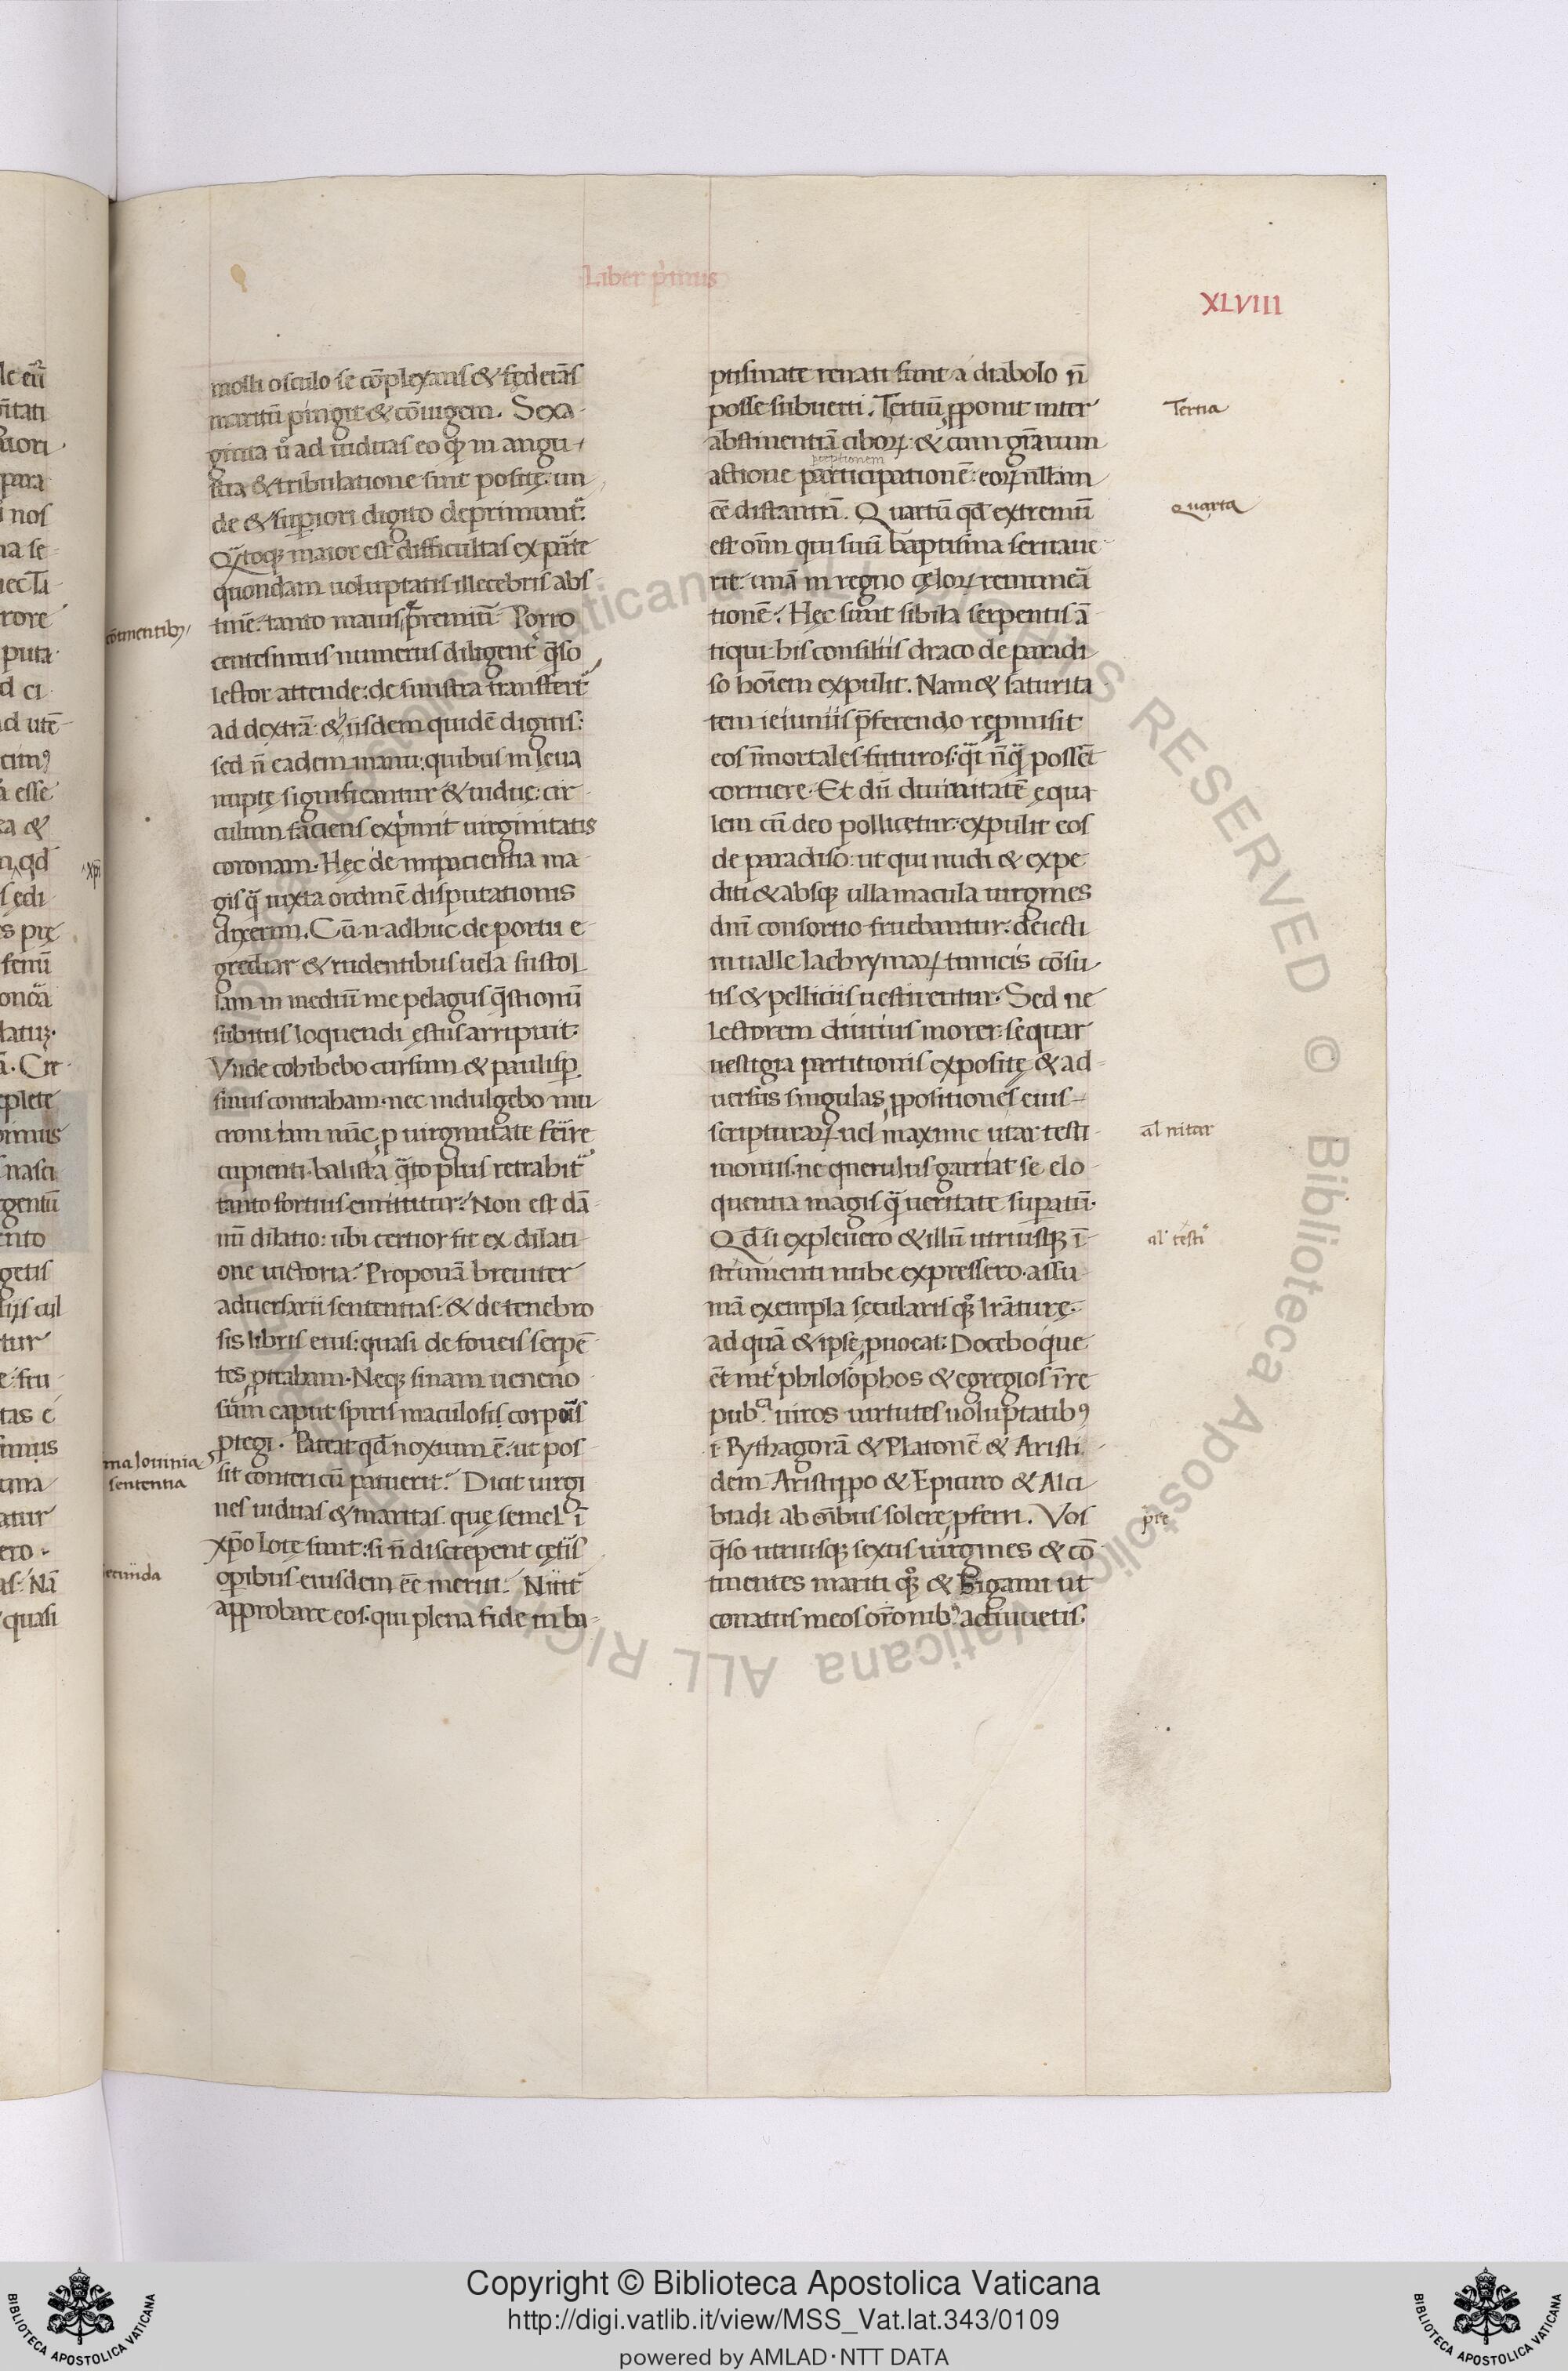 Liber p̓imus
XLVIII
molli osculo se cõplexans & fęderãs
maritũ pingit & cõiugem. Sexa-
ginta ů ad uiduas eo qđ in angu-
stia & tribulatione sint positę: un
de & sup̱iori digito deprimunt̃.
Q̃toq; maior est difficultas expẽte
quondam uoluptatis illecebris abs
tinẽ: tanto maius p̃remiũ Porro
centesimus numerus diligent̃ q̃so
lector attende: de sinistra transfert̃
ad dextrã & iisdem quidẽ digitis:
sed ñ eadem manu: quibus in leua
nuptę significantur & uiduę: cir-
culum faciens exp̓mit uirginitatis
coronam. Hęc de impacientia ma-
gis q̃ iuxta ordinẽ disputationis
dixerim. Cũ n adhuc de portu e-
grediar & rudentibus uela sustol
lam in mediũ me pelagus q̃stionũ
subitus loquendi ęstus arripuit.
Vnde cohibebo cursum & paulisp̱
sinus contraham. nec indulgebo mu
croni iam nũc p̱ uirginitate ferire
cupienti. balista q̃to plus retrahit̃
tanto fortius emittitur. Non est dã-
nũ dilatio: ubi certior fit ex dilati-
one uictoria. Proponã breuiter
aduersarii sententias: & de tenebro
sis libris eius: quasi de foueis serpẽ-
tes p̱trabam. Neq; sinam ueneno-
sum caput spiris maculosis corporis
p̱tegi. Pateat qđ noxium ẽ: ut pos-
sit conteri cũ patuerit. Dicit uirgi
nes uiduas & maritas. quę semel ĩ
xp̃o lotę sunt: si ñ discrepent cęt̃is
op̱ibus eiusdem eẽ meriti. Nitit̃
approbare eos. qui plena fide in ba-
ptismate renati sunt a diabolo ñ
posse subuerti. Tertiũ p̱ponit inter
abstinentiã ciboꝝ & cum gr̃arum
actione participationẽ: eoꝝ nullam
eẽ distantiã. Quartũ qđ extremũ
est om̃ qui suũ baptisma seruaue
rit: unã in regno cęloꝝ remunerã
tionẽ. Hęc sunt sibila serpentis ã
tiqui. his consiliis draco de paradi
so hoĩem expulit. Nam & saturita
tem ieiuniis p̃ferendo rep̱misit
eos ĩmortales futuros. q̃i ñq̃ possẽt
corruere. Et dũ diuinitatẽ ęqua
lem cũ deo pollicetur. expulit eos
de paradiso: ut qui nudi & expe
diti & absq; ulla macula uirgines
dñi consortio fruebantur. deiecti
in ualle lachrymaꝝ tunicis cõsu
tis & pelliciis uestirentur. Sed ne
lectorem diutius morer. sequar
uestigia partitionis expositę & ad-
uersus singulas p̱positiones eius-
scripturaꝝ uel maxime utar testi-
moniis. ne querulus garriat se elo-
quentia magis q̃ ueritate sup̱atũ.
Qđ si expleuero & illũ utriusq; ĩ-
strumenti nube expressero. assu-
mã exempla sęcularis qꝫ lr̃aturę.
ad quã & ipse p̱uocat. Doceboque
ẽt int̃ philosophos & egregios ĩ re
pub.ᵃ uiros uirtutes uoluptatibꝰ
i Pythagorã & Platonẽ & Aristi
dem Aristippo & Epicuro & Alci
biadi ab om̃ibus solere p̱ferri. Vos
q̃so utriusq; sexus uirgines & cõ
tinentes mariti qꝫ & Bigami ut
conatus meos orõnibꝰ adiuuetis.
cõtinentibꝫ
sententia
Tertia
p̱ceptionem
Quarta
al̃ nitar
al̃ testi
Copyright © Biblioteca Apostolica Vaticana
http://digi.vatlib.it/view/MSS_Vat.lat.343/0109
powered by AMLAD·NTT DATA
BIBLIOTECA APOSTOLICA VATICANA
BIBLIOTECA APOSTOLICA VATICANA